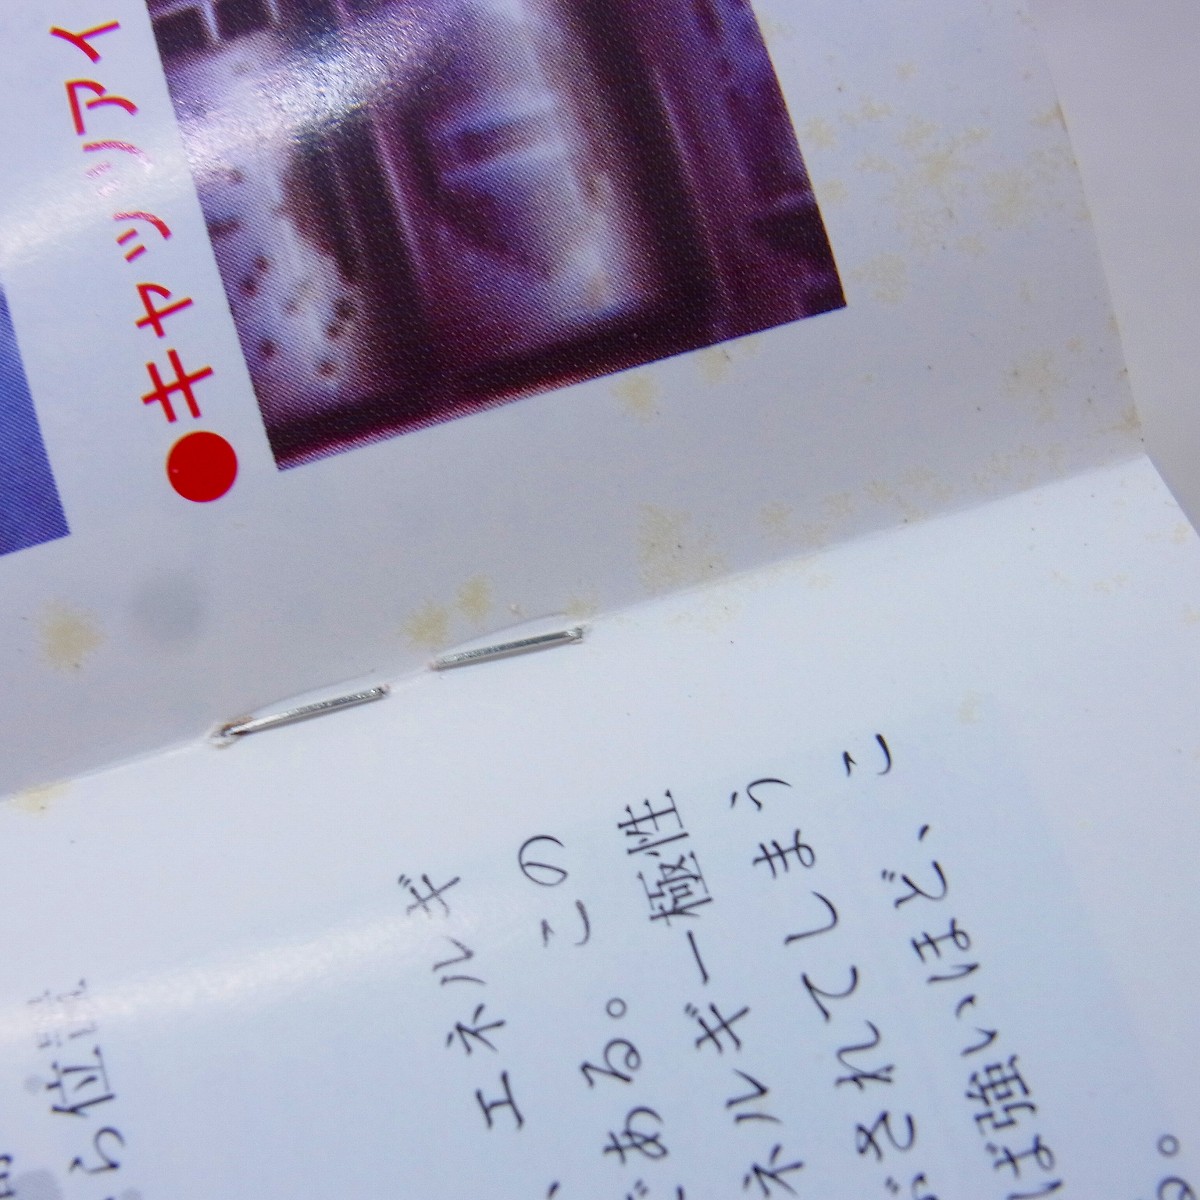 ●キャッツアイ
ら位置
、エネルギ
である。この
ネルギー極性
されてしまう
ば強いほど、こ
。